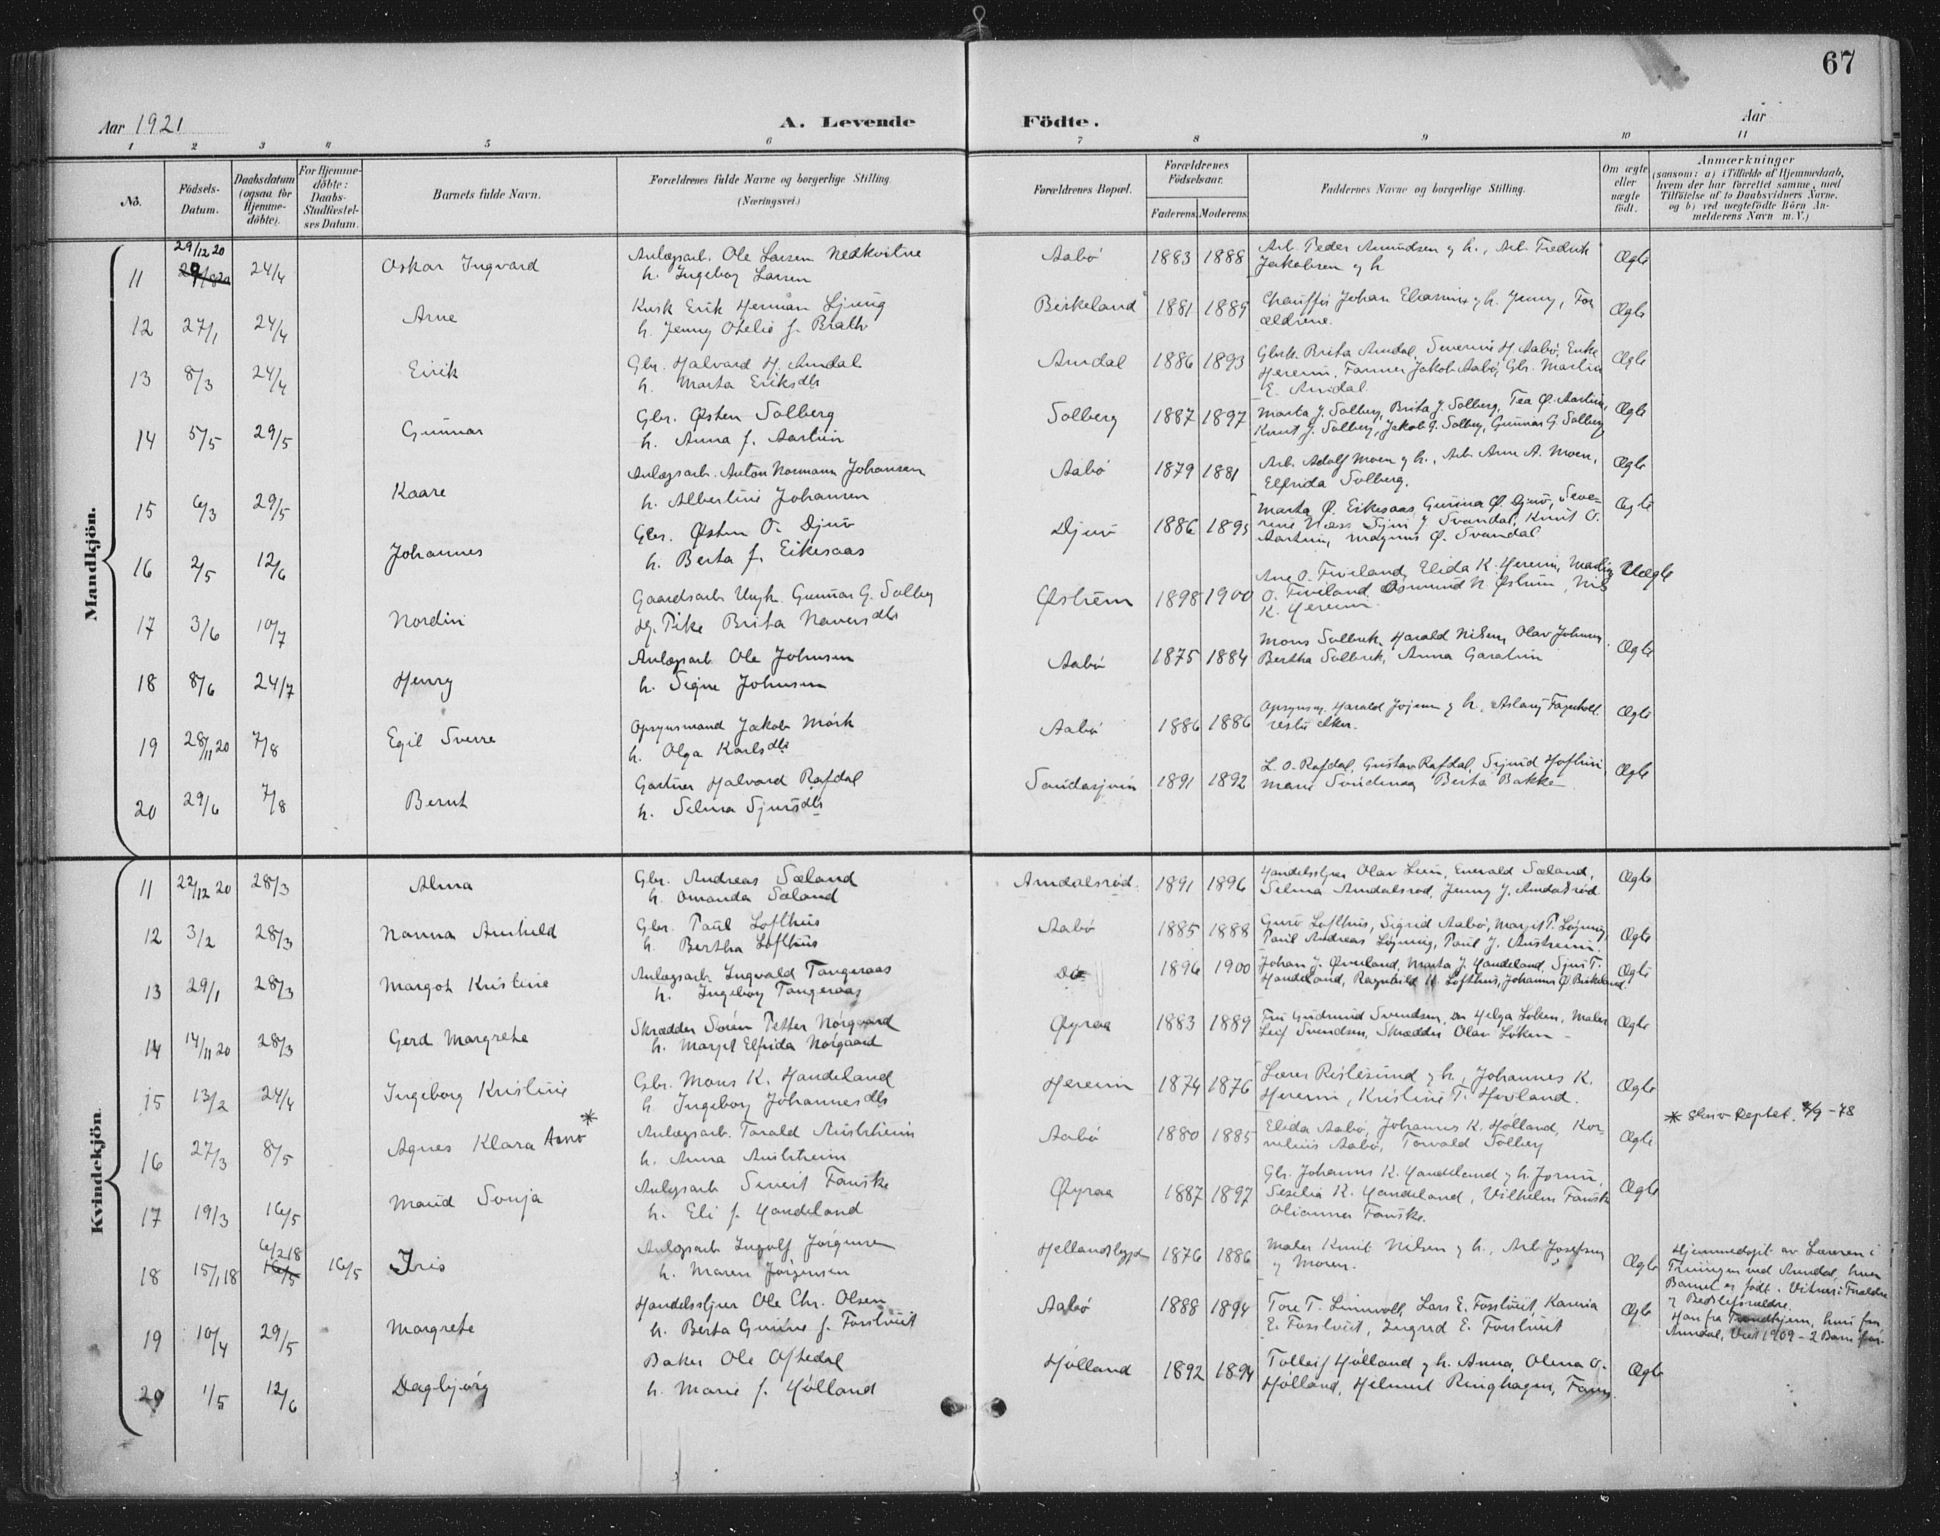 67
Aar 1921
A. Levende Födte.
Aar
1 2 3 4 5 6 7 8 9 10 11
No.
Födsels-Datum.
Daabsdatum (ogsaa for Hjemmedöbte).
For Hjemmedöbte: Daabs-Stadfæstelses Datum.
Barnets fulde Navn.
Forældrenes fulde Navne og borgerlige Stilling. (Næringsvei.)
Forældrenes Bopæl.
Forældrenes Födselsaar.
Faderens Moderens
Faddernes Navne og borgerlige Stilling.
Om ægte eller uægte födt.
Anmærkninger
(saasom: a) i Tilfælde af Hjemmedaab, hvem der har forrettet samme, med Tilföielse af to Daabsvidners Navne, og b) ved uægtefödte Börn Anmelderens Navn m. V.)
Mandkjön.
29/12 20
11 24/4 Oskar Ingvard Anlægsarb. Ole Larsen Nedkvitne Aabø 1883 1888 Arb. Peder Amundsen y h., Arb. Fredrik Ægte
h. Ingeborg Larsen Jakobsen y h
12 27/1 24/4 Arne Kusk Erik Herman Ljung Birkeland 1881 1889 Chauffør Johan Eliassen y h. Jenny, For Ægte
h. Jenny Otelie f. Brath ældrene.
13 8/3 24/4 Eirik Gbr. Halvard H. Amdal Amdal 1886 1893 Gbrk. Brita Amdal, Severine H. Aabø, Enke Ægte
h. Marta Eriksdtr Hereim, Tømmer Jakob Aabø, Gbr. Martin
E. Amdal.
14 5/5 29/5 Gunnar Gbr. Østen Solberg Solberg 1887 1897 Marta J. Solberg, Brita J. Solberg, Tea Ø. Aartun, Ægte
h. Anna f. Aartun Knut J. Solberg, Jakob J. Solberg, Gunnar G. Solberg
15 6/3 29/5 Kaare Anlægsarb. Anton Normann Johansen Aabø 1879 1881 Arb. Adolf Moen y h., Arb. Arne A. Moen, Ægte
h. Albertine Johansen Elfrida Solberg.
16 2/5 12/6 Johannes Gbr. Østen O. Djuv Djuv 1886 1895 Marta Ø. Eikesaas, Gunna Ø. Djuv, Seve- Ægte
h. Berta f. Eikesaas rine Næss, Sjur J Svandal, Knut O.
Aartun, Magnus Ø. Svandal
17 3/6 10/7 Nordin Gaardsarb. Ungk. Gunnar G. Solberg Østrem 1898 1900 Ane O. Fiveland, Elida K. Hereim, Uægte
Pike Brita Naversdtr O. Fiveland, Osmund N. Østrem, Nils
K. Hereim.
18 8/6 24/7 Henry Anlægsarb. Ole Johnsen Aabø 1875 1884 Mons Solbrek, Harald Nilsen, Olav Johnsen, Ægte
h. Signe Johnsen Bertha Solbrek, Anna Garatun
19 28/11 20 7/8 Egil Sverre Opsynsmand Jakob Mørk Aabø 1886 1886 Opsynsm. Harald Jojem y h., Aslaug Fagerholt Ægte
h. Olga Karlsdtr
20 29/6 7/8 Bernt Gartner Halvard Rafdal 1891 1892 L. O. Rafdal, Gustav Rafdal, Sigurd Hoftun, Ægte
h. Selma Sjursdtr Marie Berta Bakke
Kvindekjön.
11 22/12 20 28/3 Alma Gbr. Andreas Sæland Amdalsrød 1891 1896 Handelsbstyrer Olav Lien, Emerald Sæland, Ægte
h. Omanda Sæland Selma Amdalsrød, Jenny J. Amdalsrød
12 3/2 28/3 Nanna Arnhild Gbr. Paul Lofthus Aabø 1885 1888 Guro Lofthus, Sigrid Aabø, Margit P. Løyning, Ægte
h. Bertha Lofthus Paul Andreas Løyning, Paul J. Austreim
13 29/1 28/3 Margot Kristine Anlægsarb. Ingvald Tangeraas Do 1896 1900 Johan J. Øverland, Marta J. Handeland, Sjur T. Ægte
h. Ingeborg Tangeraas Handeland, Ragnhild H. Lofthus, Johannes Ø. Birkeland
14 14/11 20 28/3 Gerd Margrethe Skrædder Sørén Petter Nørgaard Øyraa 1883 1889 Fru Gudrund Svendsen, Helga Løken, Maler Ægte
h. Margit Elfrida Nørgaard Leif Svendsen, Skrædder Olav Løken
15 13/2 24/4 Ingeborg Kristine Gbr. Mons K. Handeland Hereim 1874 1876 Lærer Rislesund y h., Johannes K. Ægte
h Ingeborg Johannesdtr Hereim, Kristine T. Hovland.
16 27/3 8/5 Agnes Klara Arno* Anlægsarb. Torald Austrheim Aabø 1880 1885 Elida Aabø, Johannes K. Hølland, Kor- Ægte
h. Anna Austrheim nelius Aabø, Torvald Solberg
* Skriv Reptet. 8/9-78
17 19/3 16/5 Maud Sonja Anlægsarb Sivert Fauske Øyraa 1887 1897 Gb. Johannes K. Handeland y h. Jorun, Ægte
h. Eli f. Handeland Sesilia K. Handeland, Vilhelm Fauske
Olianna Fauske.
6/2 18
18 15/1 18 16/5 16/5 Iris Anlægsarb Ingolf Jørgensen Hellandsbygd 1876 1886 Maler Knut Nilsen y h., Arb. Josefsen Ægte
h. Maren Jørgensen y Moren.
Hjemmedøpt av Læreren i
ved Amdal, hvor
Barnet er født. Vitner: Forældre
y Bedsteforældre.
Han fra Trondhjem, hun fra
Amdal, Viet 1909 - 2 Barn før.
19 10/4 29/5 Margrete Handelsstyrer Ole Chr. Olsen Aabø 1888 1894 Tore T. Lunnvoll, Lars E. Fosstveit, Karena Ægte
h. Berta Gurine f. Fosstveit E. Fosstveit, Ingrid E. Fosstveit
20 1/5 12/6 Dagbjørg Baker Ole Oftedal Hølland 1892 1894 Tolleif Hølland y h. Anna, Olena O. Ægte
h. Marie f. Hølland Hølland, Helmert Ringhagen, Faren